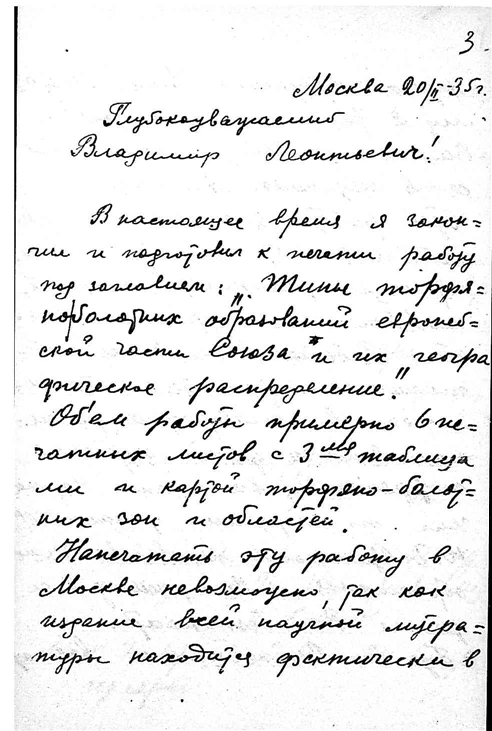 3.
Москва 20/II-35г.
Глубокоуважаемый
Владимир Леонтьевич!
В настоящее время я закон=
чил и подготовил к печати работу
под заглавием: „Типы торфя-
но-болотных образований европей-
ской части Союза и их геогра
фическое распределение."
Об'ем работы примерно 6 пе=
чатных листов с 3мя таблица
ми и картой торфяно-болот=
ных зон и областей.
Напечатать эту работу в
Москве невозможно, так как
издание всей научной литера=
туры находится фактически в